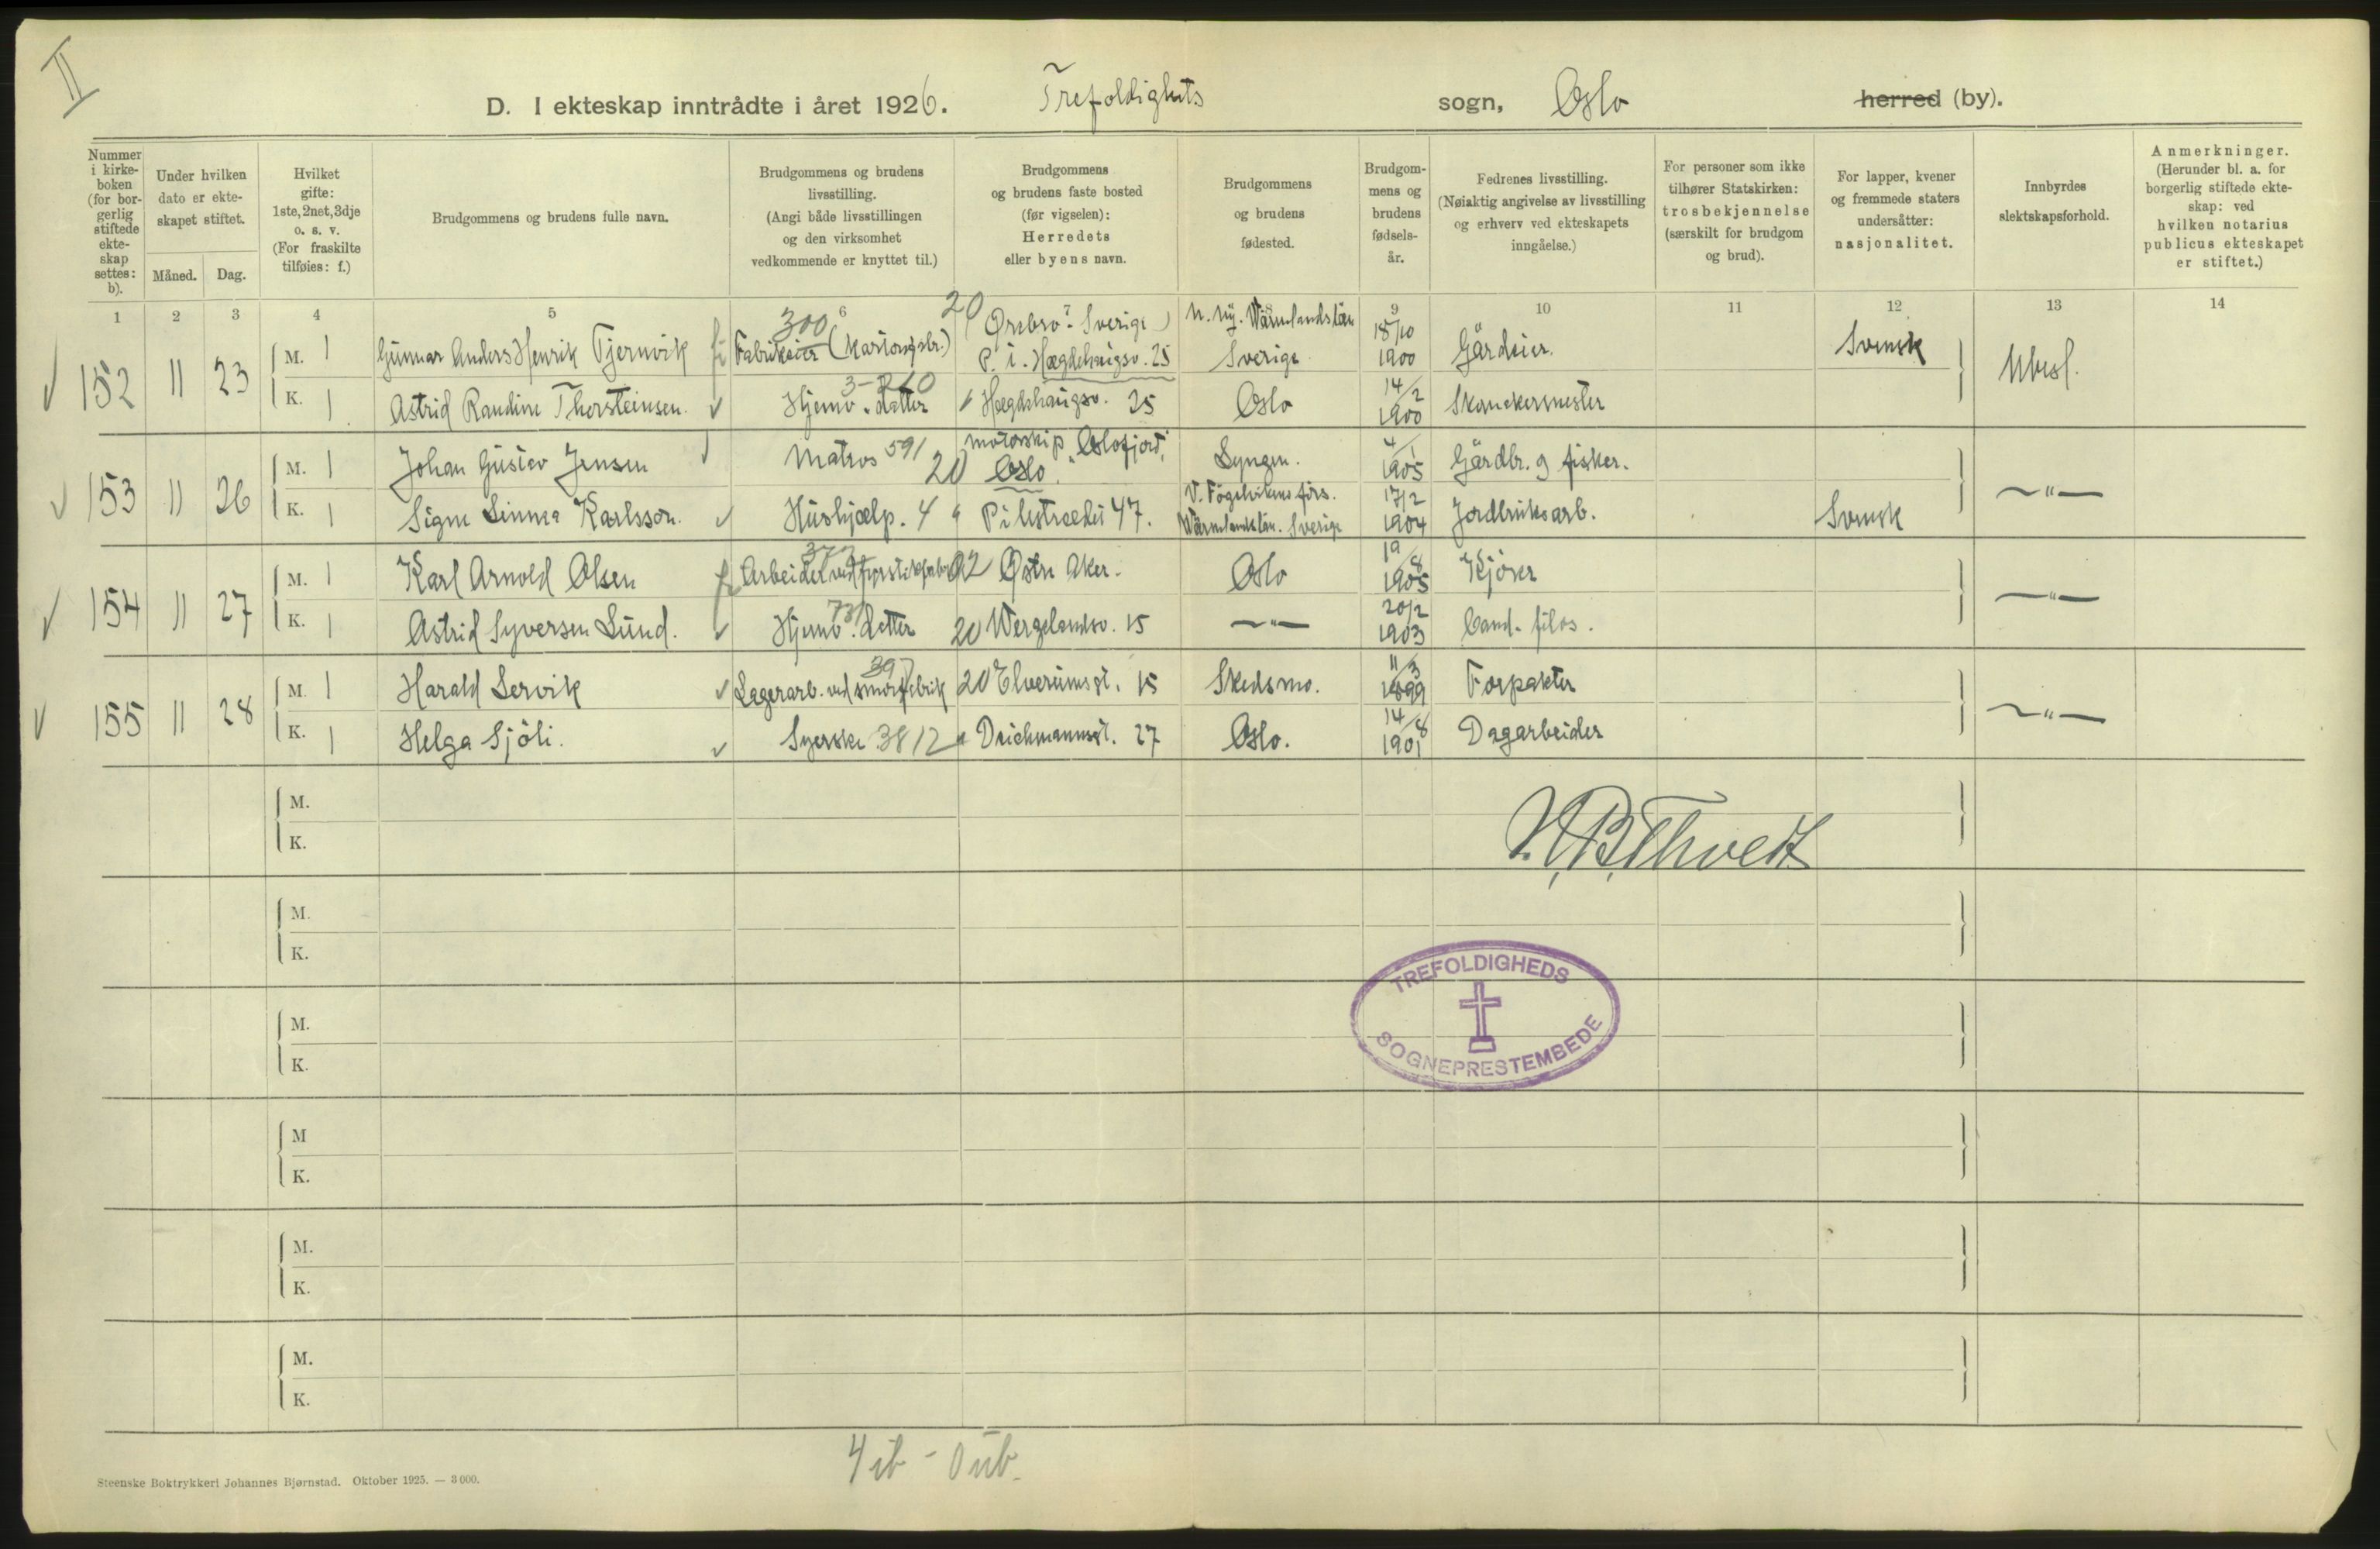 II
D. I ekteskap inntrådte i året 1926. Trefoldighets sogn, Oslo herred (by).
Nummer i kirke-boken (for bor-gerlig stiftede ekte-skap settes: b).
Under hvilken dato er ekte-skapet stiftet.
Måned. Dag.
Hvilket gifte: 1ste, 2net, 3dje o. s. v. (For fraskilte tilføies: f.)
Brudgommens og brudens fulle navn.
Brudgommens og brudens livsstilling. (Angi både livsstillingen og den virksomhet vedkommende er knyttet til.)
Brudgommens og brudens faste bosted (før vigselen): Herredets eller byens navn.
Brudgommens og brudens fødested.
Brudgom-mens og brudens fødsels-år.
Fedrenes livsstilling. (Nøiaktig angivelse av livsstilling og erhverv ved ekteskapets inngåelse.)
For personer som ikke tilhører Statskirken: trosbekjennelse (særskilt for brudgom og brud).
For lapper, kvener og fremmede staters undersåtter: nasjonalitet.
Innbyrdes slektskapsforhold.
Anmerkninger. (Herunder bl. a. for borgerlig stiftede ekte-skap: ved hvilken notarius publicus ekteskapet er stiftet.)
1 2 3 4 5 6 7 8 9 10 11 12 13 14
152 11 23 M. 1 Gunnar Anders Henrik Tjernvik Fabrikeier 300 20 (Örebro - Sverige) P. t. Hægdehaugsv. 25 N. Ny. Wärmlandslän Sverige 18/10 1900 Gårdeier. Svensk Ubesl.
K. 1 Astrid Randine Thorsteinsen. Hjemv. datter Hægdehaugsv. 25 Oslo 14/2 1900 Skomakermester
153 11 26 M. 1 Johan Gustav Jensen Matros 591 20 motorskip "Oslofjord," Oslo. Lyngen. 4/1 1905 Gårdbr. og fisker. — " —
K. 1 Signe Linnea Karlsson. Hushjælp. 4 " Pilestrædet 47. V. Fogelvikens förs. Wärmlandslän. Sverige 17/2 1904 Jordbruksarb. Svensk
154 11 27 M. 1 Karl Arnold Olsen Arbeider ved fyrstikfabr. 02 Østre Aker. Oslo 19/8 1905 Kjører — " —
K. 1 Astrid Syversen Lund. Hjemv. datter 731 20 Wergelandsv. 15 — " — 20/2 1903 Cand. filos.
155 11 28 M. 1 Harald Lervik Lagerarb. ved smørfabrik 397 20 Elverumsgt. 15 Skedsmo. 11/3 1899 Forpakter — " —
K. 1 Helga Sjöli. Syerske 3812 " Deichmannsgt. 27 Oslo. 14/8 1901 Dagarbeider
M.
K.
Thveit
M.
K.
TREFOLDIGHEDS
SOGNEPRESTEMBEDE
M.
K.
M
K.
M.
K.
M.
K.
4 ib - 0 ub.
Steenske Boktrykkeri Johannes Bjørnstad. Oktober 1925. — 3 000.